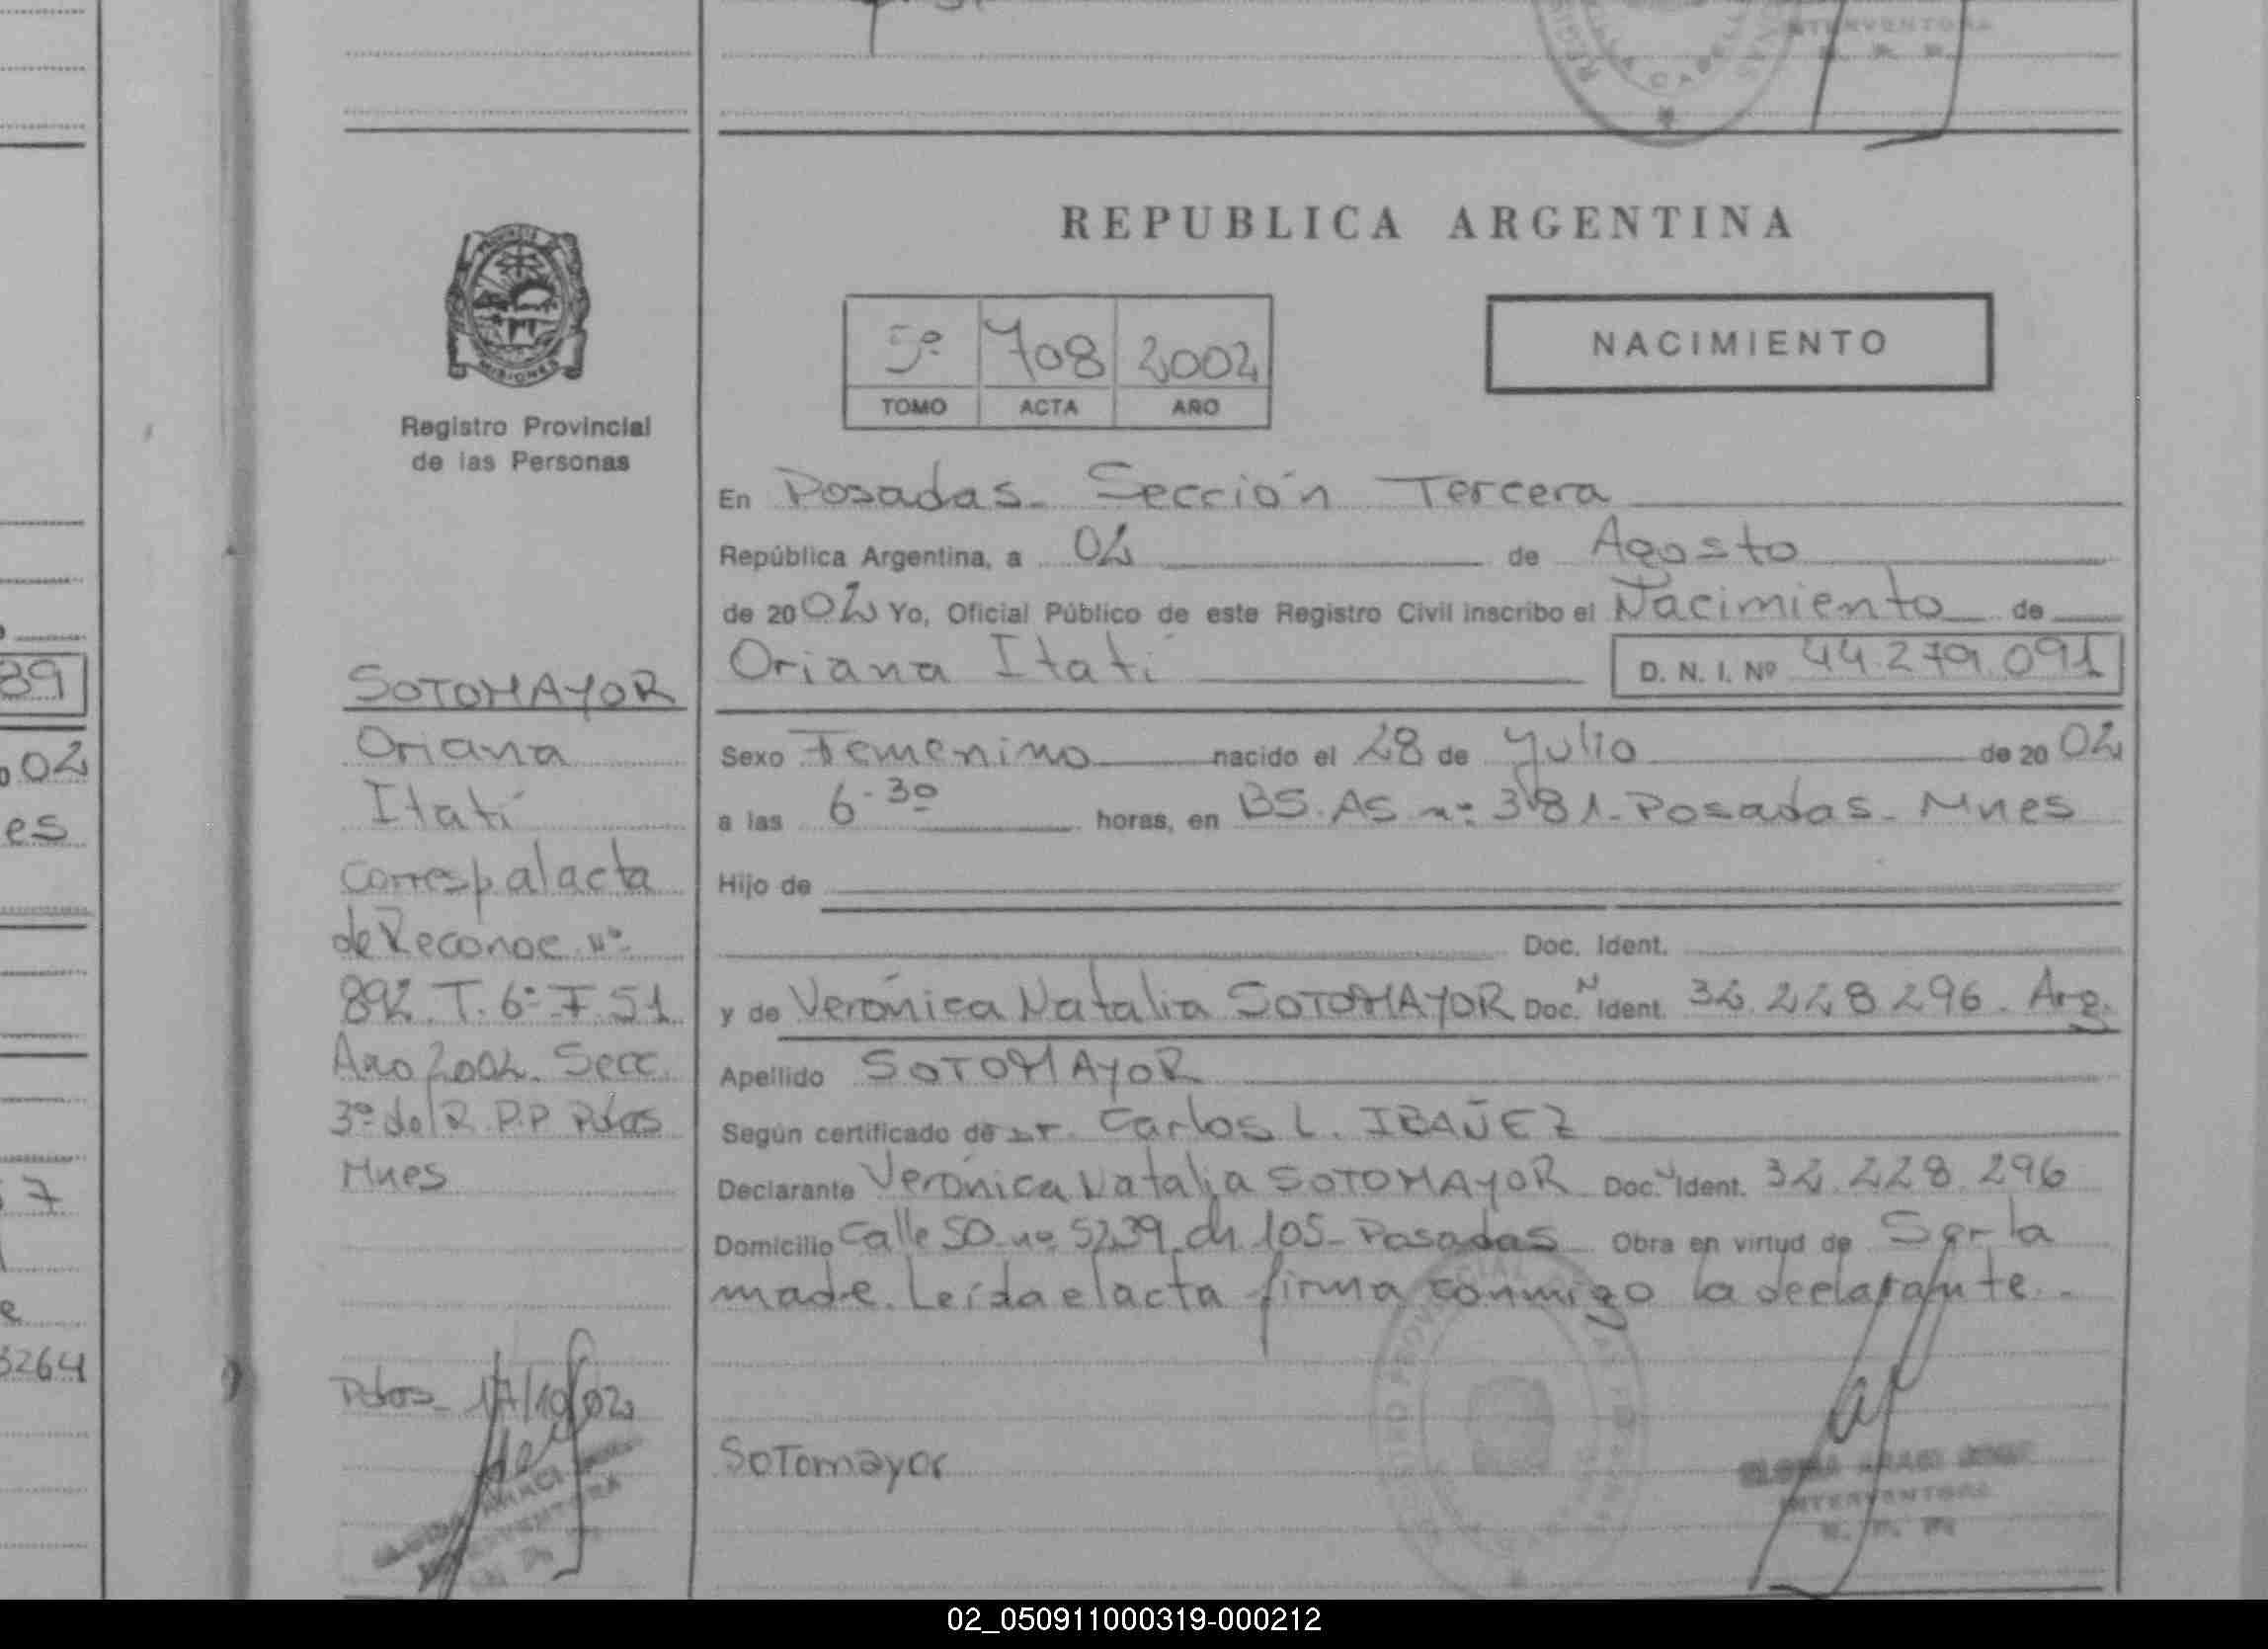 INTERVENTORA
REPUBLICA ARGENTINA
5º 708 2002
TOMO ACTA AÑO
NACIMIENTO
PROVINCIA DE
MISIONES
Registro Provincial
de las Personas
En Posadas. Sección Tercera
República Argentina, a 02 de Agosto
de 2002 Yo, Oficial Público de este Registro Civil inscribo el Nacimiento de
Oriana Itatí D. N. I. Nº 44.279.091
Sexo Femenino nacido el 28 de Julio de 2002
a las 6-30 horas, en BS. AS nº 381- Posadas- Mnes
Hijo de
Doc. Ident.
y de Verónica Natalia SOTOMAYOR Doc. N Ident. 32.228.296. Arg.
Apellido SOTOMAYOR
Según certificado de Dr. Carlos L. IBAÑEZ
Declarante Verónica Natalia SOTOMAYOR Doc. N Ident. 32.228.296
Domicilio Calle 50 nº 5239 ch 105- Posadas Obra en virtud de Ser la
madre. Leída el acta firma conmigo la declarante.-
Sotomayor
INTERVENTORA
SOTOMAYOR
Oriana
Itatí
Corresp al acta
de Reconoc nº
892. T. 6º F 51
Año 2002. Secc.
3º del R.P.P Pdas
Mnes
Pdas- 17/10/02
INTERVENTORA
39
02
es
7
e
3264
02_050911000319-000212